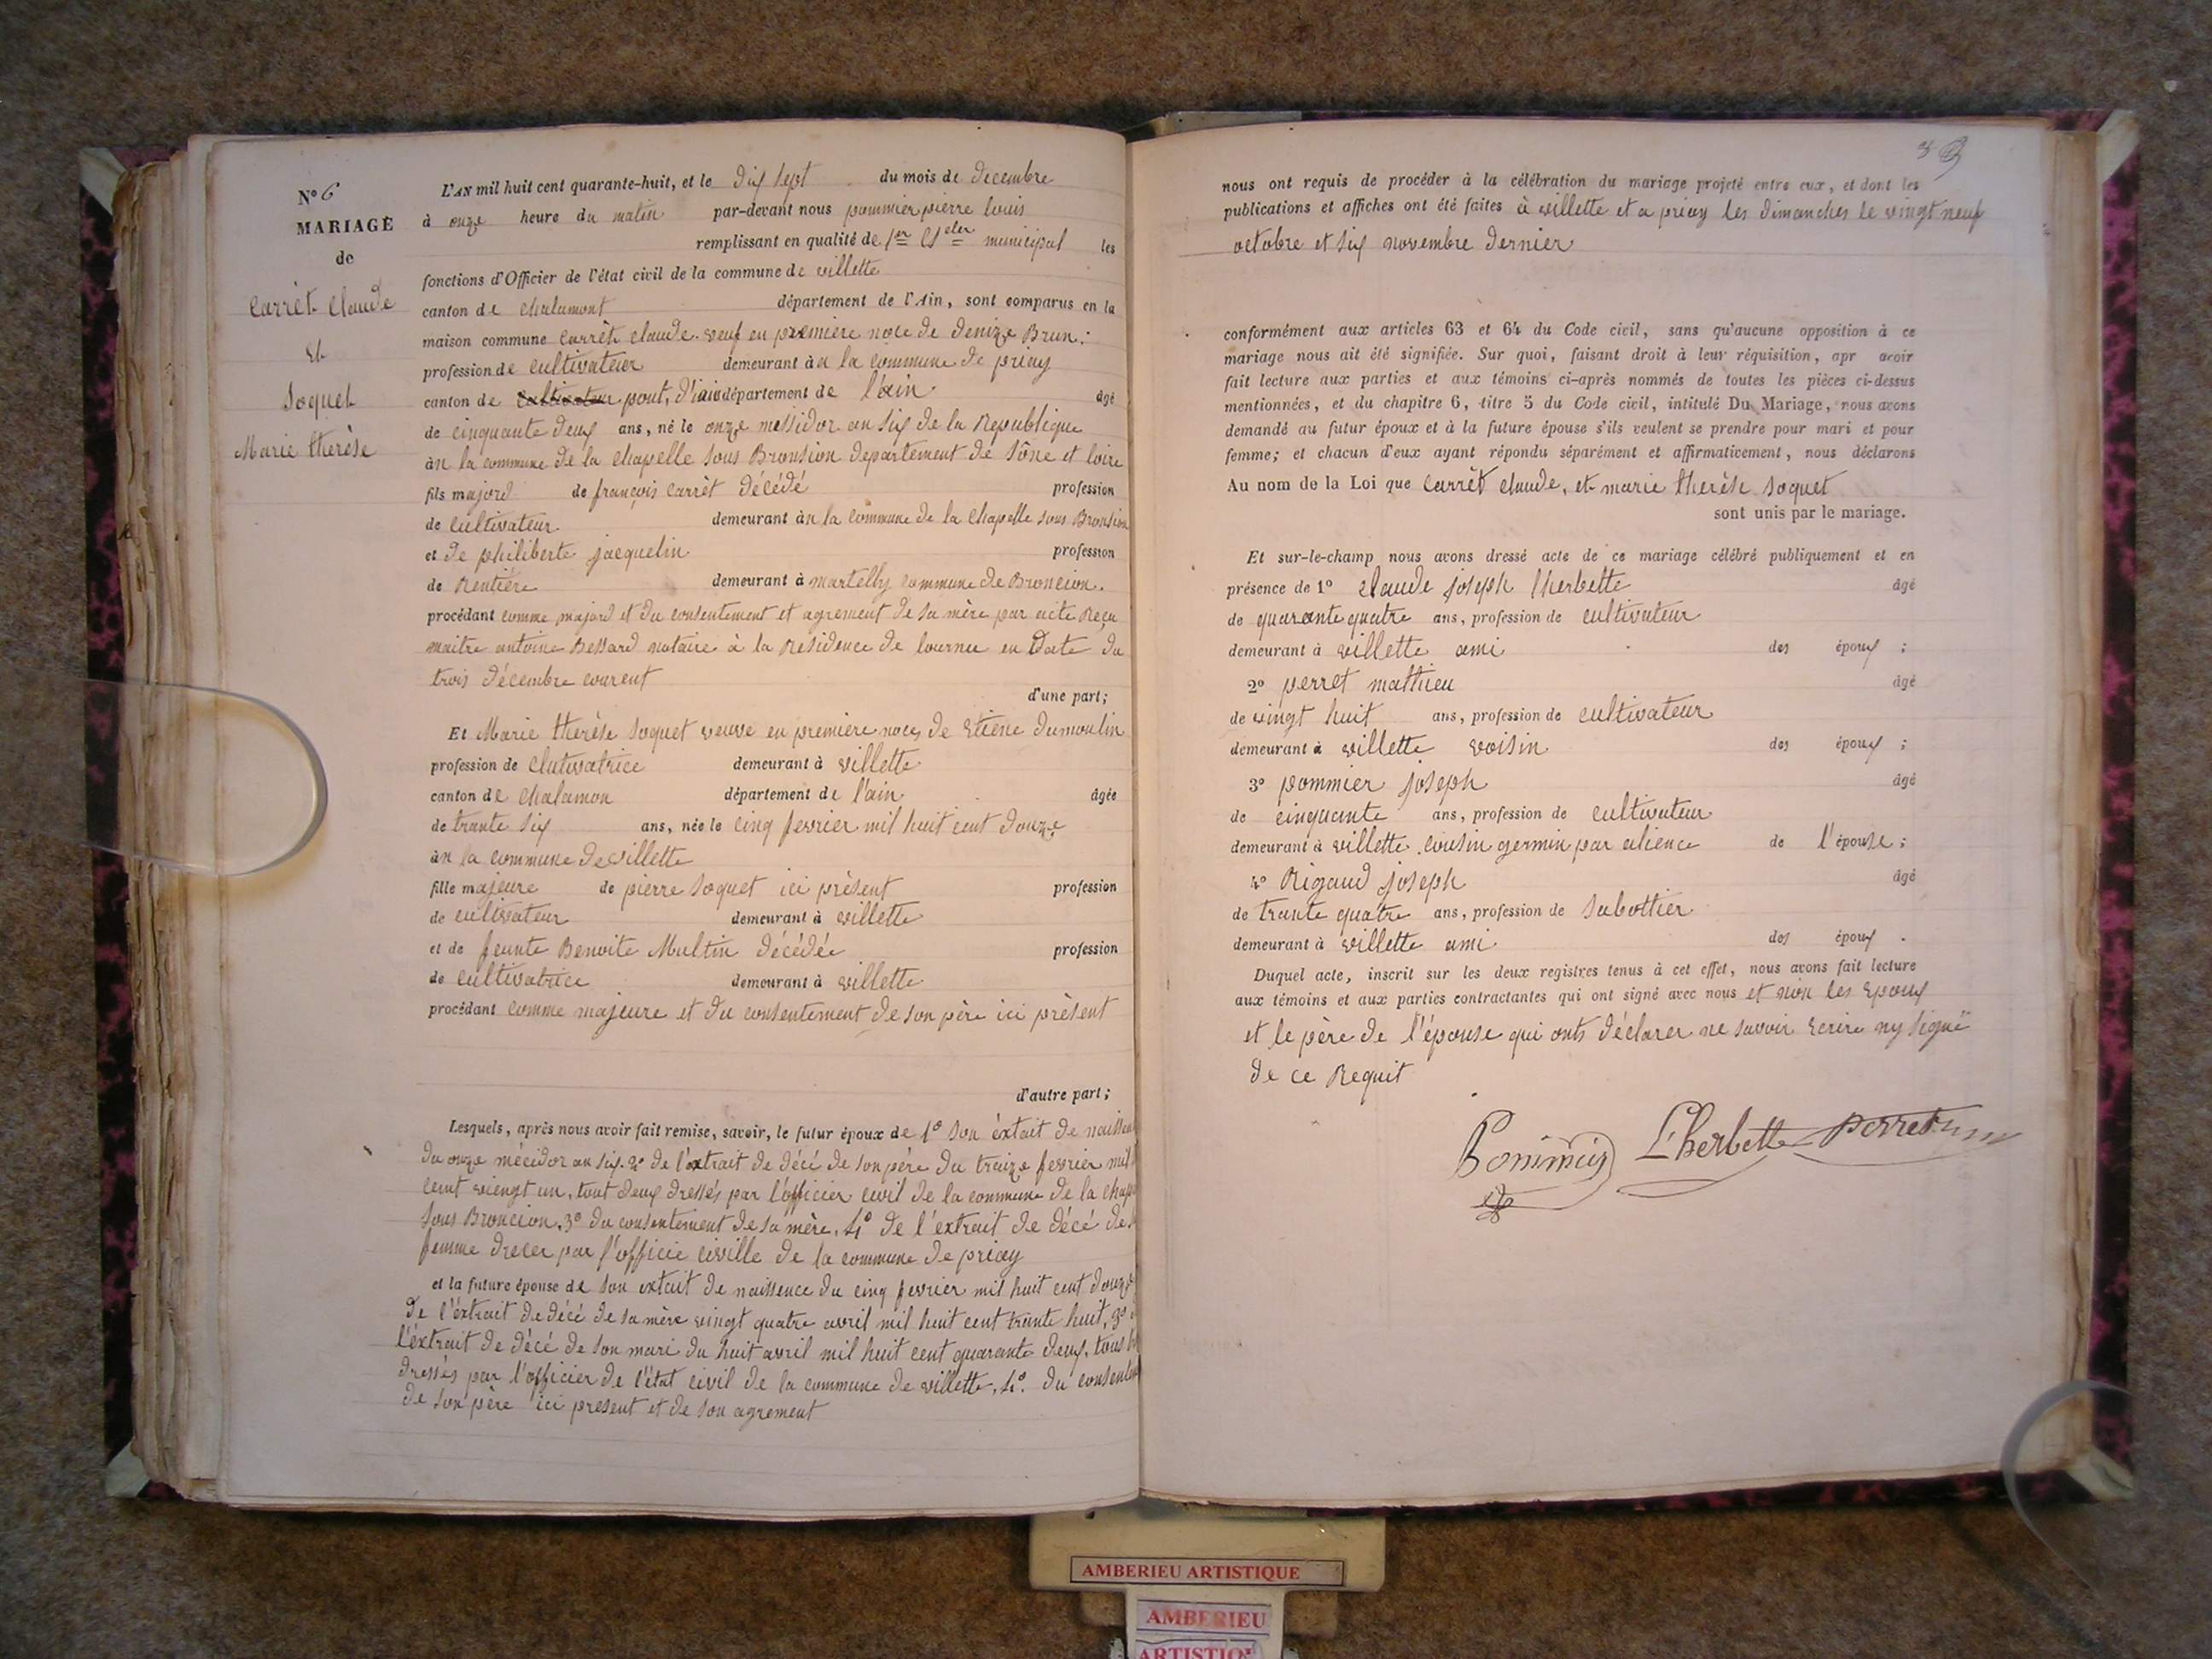 N° 6
MARIAGE
de
Carrèt Claude
Et
Soquet
Marie therèse
L'AN mil huit cent quarante-huit, et le dix sept du mois de decembre
à onze heure du matin par-devant nous pommier pierre louis
remplissant en qualité de 1er municipal les
fonctions d'Officier de l'état civil de la commune de villette
canton de chalamont département de l'Ain, sont comparus en la
maison commune Carrèt claude veuf en première noce de denize Brun:
profession de cultivateur demeurant à n la commune de priay
canton de cultivateur pont, d'ain département de l'ain âgé
de cinquante deux ans, né le onze messidor an six de la Republique
à n la commune de la chapelle sous Bronsion departement de Sône et loire
fils majord de françois carrèt décédé profession
de cultivateur demeurant à n la commune de la chapelle sous Bronsion
et de philiberte jacquelin profession
de Rentière demeurant à martelly commune de Broncion.
procédant comme majord et du consentement et agrement de sa mère par acte Reçu
maitre antoine Bessard notaire à la Residence de lournue en Date du
trois décembre courent
d'une part;
Et Marie therèse Soquet veuve en première noces de Etiene dumoulin
profession de clutivatrice demeurant à villette
canton de chalamon département de l'ain âgée
de trante six ans, née le cinq fevrier mil huit cent douze
à n la commune de villette
fille majeure de pierre Soquet ici présent profession
de cultivateur demeurant à villette
et de feunte Benoite Multin décédée profession
de cultivatrice demeurant à villette
procédant comme majeure et du consentement de son père ici prèsent
d'autre part;
Lesquels, après nous avoir fait remise, savoir, le futur époux de 1° son éxtait de
du onze mécidor an six. 2° de l'extrait de décé de son père du treize fevrier mil
cent viengt un, tout deux dressés par l'officier civil de la commune de la
sous Broncion, 3° du consentement de sa mère, 4° de l'extrait de décé de
femme drecer par l'officie civille de la commune de priay
et la future épouse de son extait de naissence du cinq fevrier mil huit cent douze
de l'éxtrait de décé de sa mère vingt quatre avril mil huit cent trante huit, 3°
l'éxtrait de décé de son mari du huit avril mil huit cent quarante deux, tous
dressés par l'officier de l'état civil de la commune de villette, 4°. du
de son père ici present et de son agrement
nous ont requis de procéder à la célébration du mariage projeté entre eux, et dont les
publications et affiches ont été faites à villette et a priay les dimanches le vingt neuf
octobre et six novembre dernier
conformément aux articles 63 et 64 du Code civil, sans qu'aucune opposition à ce
mariage nous ait été signifiée. Sur quoi, faisant droit à leur réquisition, apr avoir
fait lecture aux parties et aux témoins ci-après nommés de toutes les pièces ci-dessus
mentionnées, et du chapitre 6, titre 5 du Code civil, intitulé Du Mariage, nous avons
demandé au futur époux et à la future épouse s'ils veulent se prendre pour mari et pour
femme; et chacun d'eux ayant répondu séparément et affirmativement, nous déclarons
Au nom de la Loi que Carrèt claude, et marie therèse Soquet
sont unis par le mariage.
Et sur-le-champ nous avons dressé acte de ce mariage célébré publiquement et en
présence de 1° claude joseph lherbette âgé
de quarante quatre ans, profession de cultivateur
demeurant à villette ami des époux ;
2° perret mathieu âgé
de vingt huit ans, profession de cultivateur
demeurant à villette voisin des époux ;
3° pommier joseph âgé
de cinquante ans, profession de cultivateur
demeurant à villette cousin germin par alience de l'épouse ;
4° Rigaud joseph âgé
de trante quatre ans, profession de sabottier
demeurant à villette ami des époux .
Duquel acte, inscrit sur les deux registres tenus à cet effet, nous avons fait lecture
aux témoins et aux parties contractantes qui ont signé avec nous et non les Epoux
et le père de l'épouse qui onts déclarer ne savoir Ecrire ny signé
de ce Requit
Pommier L'herbette perret
AMBERIEU ARTISTIQUE
AMBERIEU
ARTISTIQ